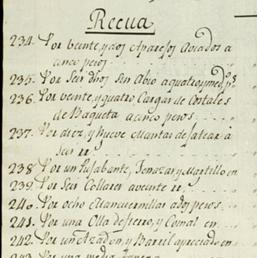 Recua
234. Por veinte, y dos Aparejos Aviados a
cinco pesos
235. Por Seis dhos sin Abio a quatro p.s
236. Por veinte, y quatro Cargas de Costales
de Baqueta a cinco pesos
237. Por diez, y nueve Mantas de
a seis rr.
238. Por un Pujabante, Tenazas y Martillo en
239. Por Seis Collares a veinte rr.
240. Por ocho a dos pesos
241. Por una Olla de fierro, y Comal en
242. Por un Azadon, y Barril apreciado en
243. Por una media